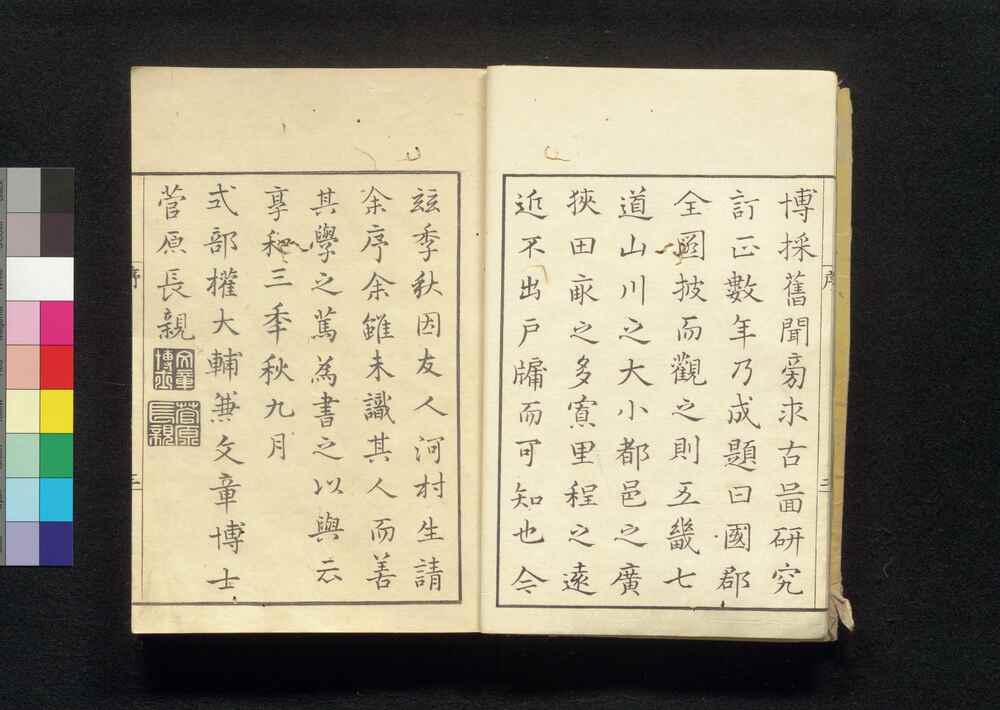 博採舊聞旁求古啚研究
訂正數年乃成題曰國郡
全圖披而觀之則五畿七
道山川之大小都邑之廣
狹田畝之多寡里程之遠
近不出戸牖而可知也今
玆季秋因友人河村生請
余序余雖未識其人而善
其學之篤為書之以與云
享和三季秋九月
式部權大輔兼文章博士
菅原長親
文章博士
菅原長親
序
三
序
三